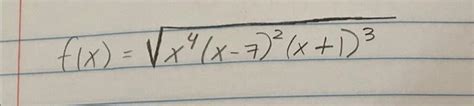 f(x) = √x⁴(x-7)²(x+1)³